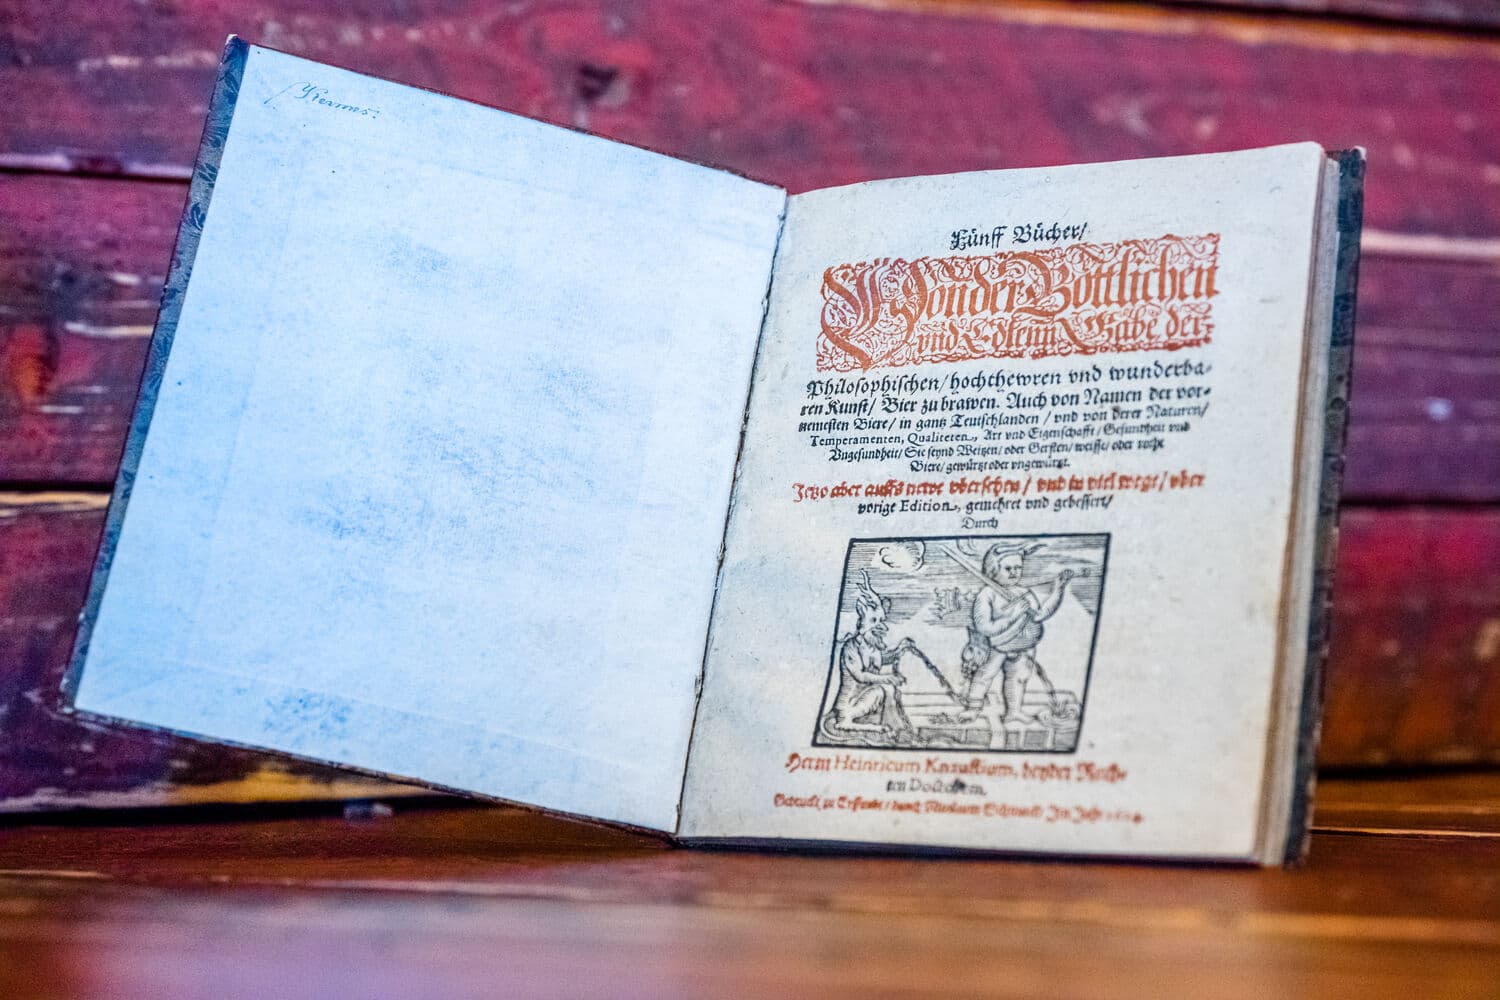 Kermes.
Fünff Bücher/
Von der Göttlichen
vnd Edlenn Gabe der
Philosophischen/ hochthewren vnd wunderba-
ren Kunst/ Bier zu brawen. Auch von Namen der vor-
nemesten Biere/ in gantz Teutschlanden/ vnd von derer Naturen/
Temperamenten, Qualiteten, Art vnd Eigenschafft/ Gesundheit vnd
Vngesundheit/ Sie seynd Weitzen/ oder Gersten/ weisse/ oder rothe
Biere/ gewürtzt oder vngewürtzt.
Jetzo aber auffs newe vbersehen/ vnd in viel wege/ vber
vorige Edition, gemehret vnd gebessert/
Durch
Herrn Heinricum Knaustium, beyder Rech-
ten Doctorem.
Gedruckt zu Erffurdt/ durch Im Jahr